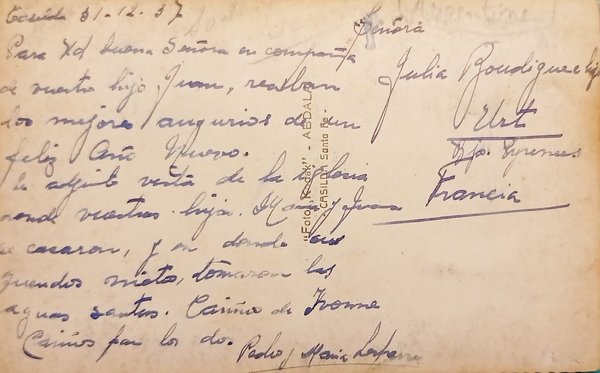 Casilda 31-12-37
Para Ud buena Señora en compañia
de vuestro hijo Juan, reciban
los mejores augurios de un
feliz Año Nuevo.
le adjto vista de la Iglesia
donde vuestros hijos. Maria y Juan
se casaron, y en donde sus
queridos nietos, tomaron las
aguas santas. Cariños de Ivonne
Cariños para los dos
Pedro y Maria
Señora
Julia Boudigue e hijo
Urt
Bjos Pyrenees
Francia
"Foto Kodak" - ABDALA
CASILDA Santa Fe